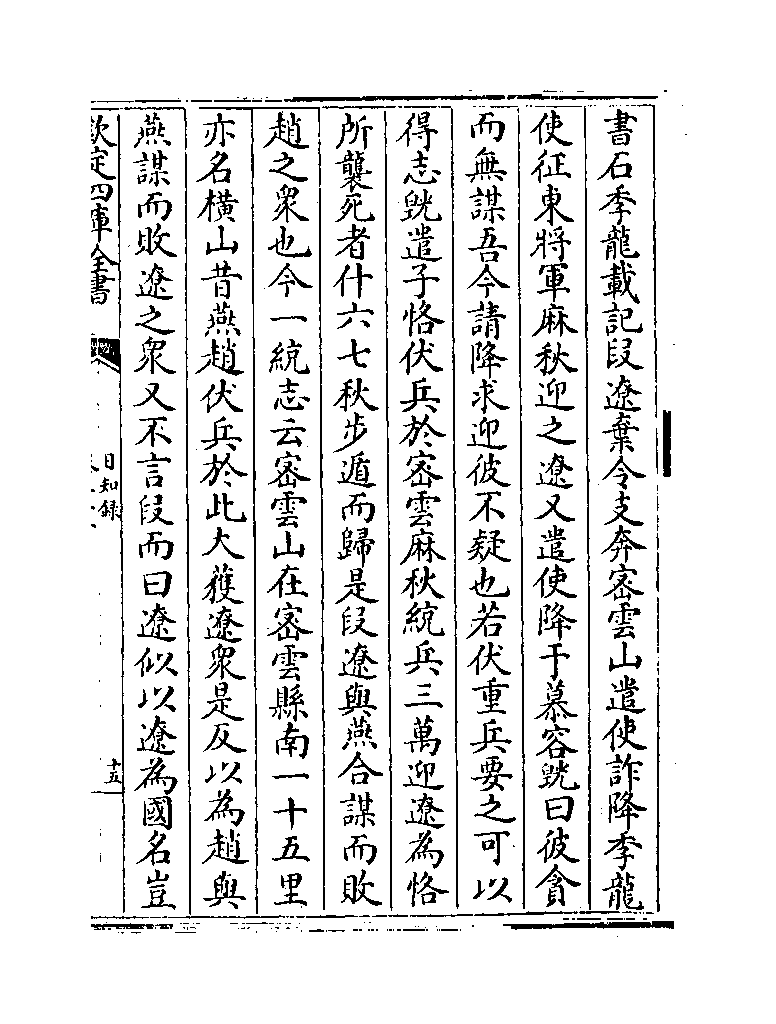 書石季龍載記段遼棄令支奔密雲山遣使詐降季龍
使征東將軍麻秋迎之遼又遣使降于慕容皝曰彼貪
而無謀吾今請降求迎彼不疑也若伏重兵要之可以
得志皝遣子恪伏兵於密雲麻秋統兵三萬迎遼為恪
所襲死者什六七秋步遁而歸是段遼與燕合謀而敗
趙之衆也今一統志云密雲山在密雲縣南一十五里
亦名横山昔燕趙伏兵於此大獲遼衆是反以為趙與
燕謀而敗遼之衆又不言段而曰遼似以遼為國名豈
欽定四庫全書
日知録
十五